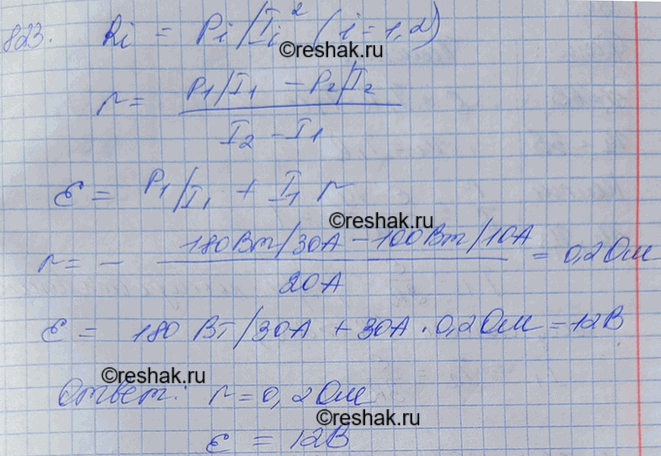 823. Ri = Pi/Ii² (i=1,2)
©reshak.ru
r = (P1/I1 − P2/I2) / (I2 − I1)
ε = P1/I1 + I1 r
©reshak.ru
r = − (180Вт/30А − 100Вт/10А) / 20А = 0,2Ом
ε = 180 Вт/30А + 30А · 0,2Ом = 12В
©reshak.ru
Ответ: r = 0,2Ом
©reshak.ru
ε = 12В